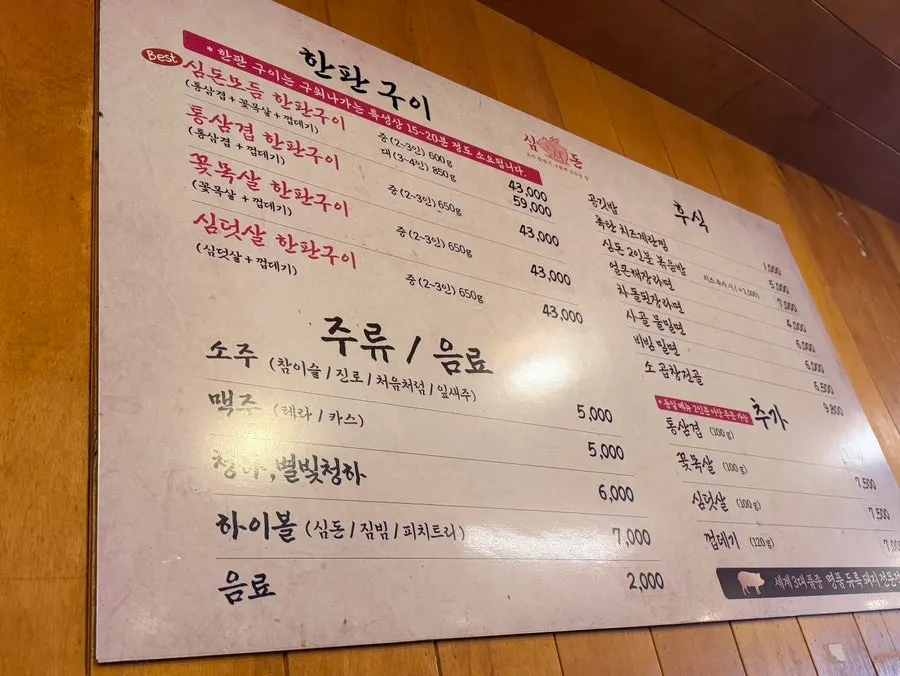 한판 구이
* 한판 구이는 구워나가는 특성상 15~20분 정도 소요됩니다.
Best 심돈모듬 한판구이
(통삼겹 + 꽃목살 + 껍데기)
중 (2~3인) 600g 43,000
대 (3~4인) 850g 59,000
통삼겹 한판구이
(통삼겹 + 껍데기)
중 (2~3인) 650g 43,000
꽃목살 한판구이
(꽃목살 + 껍데기)
중 (2~3인) 650g 43,000
심덧살 한판구이
(심덧살 + 껍데기)
중 (2~3인) 650g 43,000
주류 / 음료
소주 (참이슬 / 진로 / 처음처럼 / 잎새주) 5,000
맥주 (테라 / 카스) 5,000
청하, 별빛청하 6,000
하이볼 (심돈 / 짐빔 / 피치트리) 7,000
음료 2,000
심돈
후식
공깃밥 1,000
폭탄 치즈계란찜 5,000
심돈 2인분 볶음밥 치즈 추가 시 (+2,500) 7,000
얼큰해장라면 4,000
차돌된장라면 6,000
사골 물밀면 6,000
비빔 밀면 6,500
소 곱창전골 9,800
추가
* 동일메뉴 2인분 이상 주문 가능
통삼겹 (100g)
꽃목살 (100g) 7,500
심덧살 (100g) 7,500
껍데기 (120g)
세계 3대 품종 명품 듀록돼지 전문점